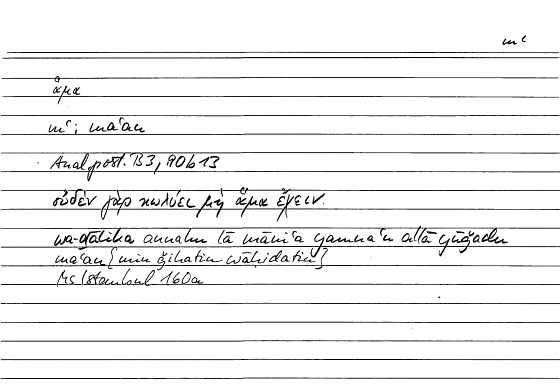 mʿ
ἅμα
mʿ; maʿan
Anal. post. B3, 90b13
οὐδὲν γὰρ κωλύει μὴ ἅμα ἔχειν.
wa-ḏālika annahu lā māniʿa yamnaʿu allā yūǧadu
maʿan [min ǧihatin wāḥidatin]
Ms Istanbul 160a